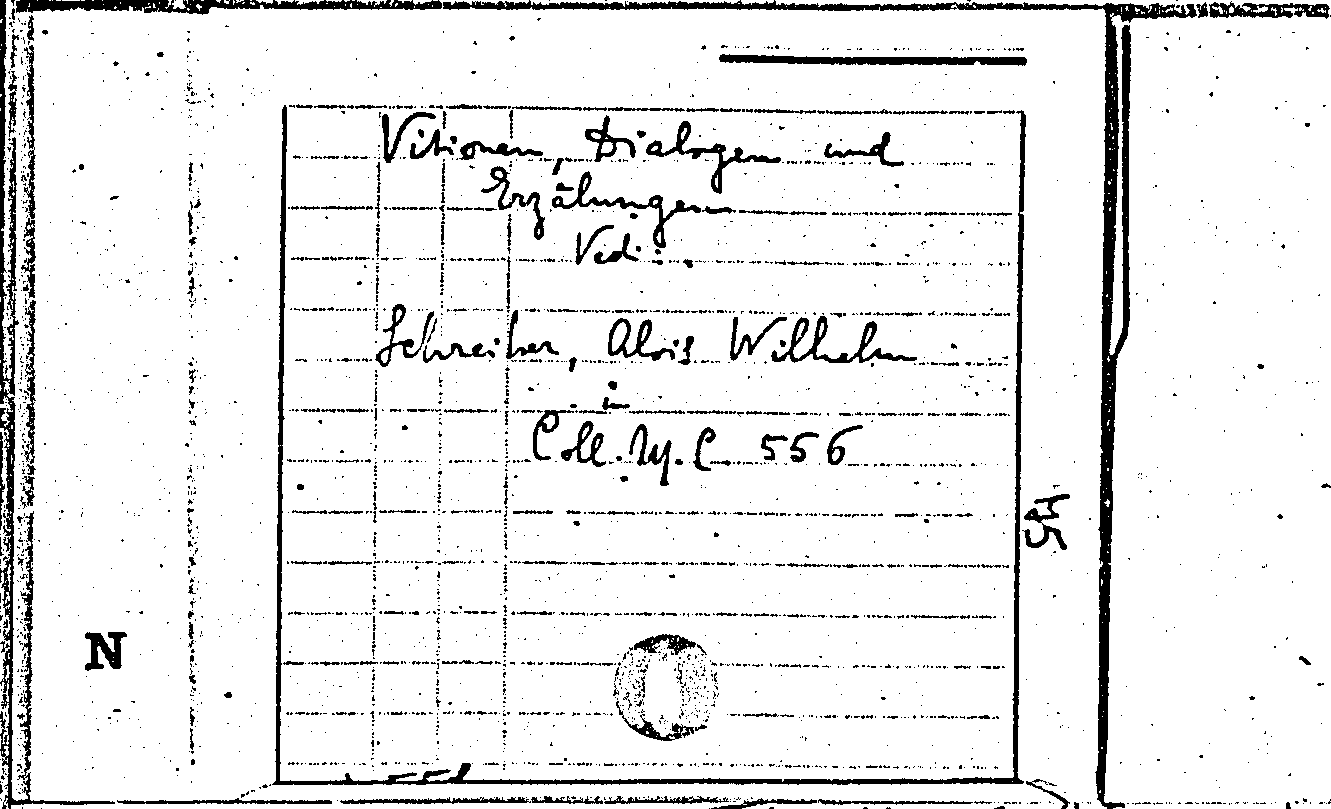 Vitionen, Dialogen und
Erzälungen
Vedi:
Schreiber, Alois Wilhelm
in
Coll. My. C 556
54
N